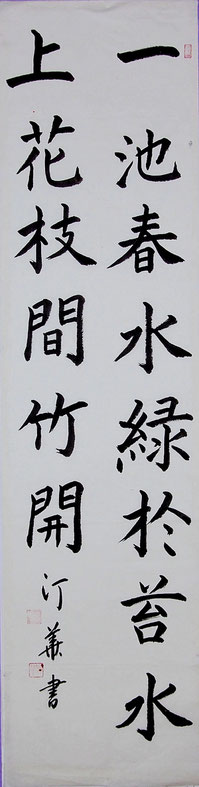 一池春水緑於苔水
上花枝間竹開
汀華書